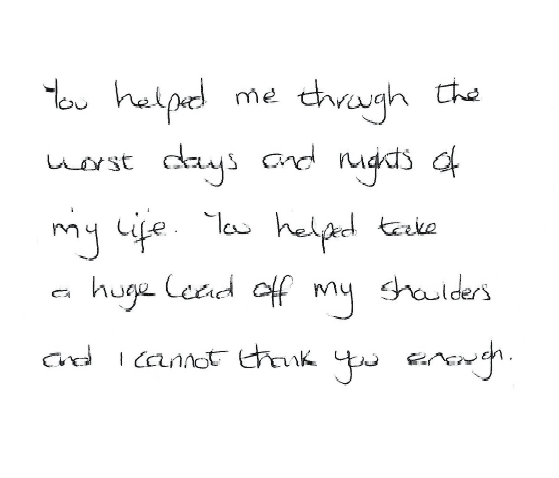 You helped me through the
worst days and nights of
my life. You helped take
a huge load off my shoulders
and I cannot thank you enough.